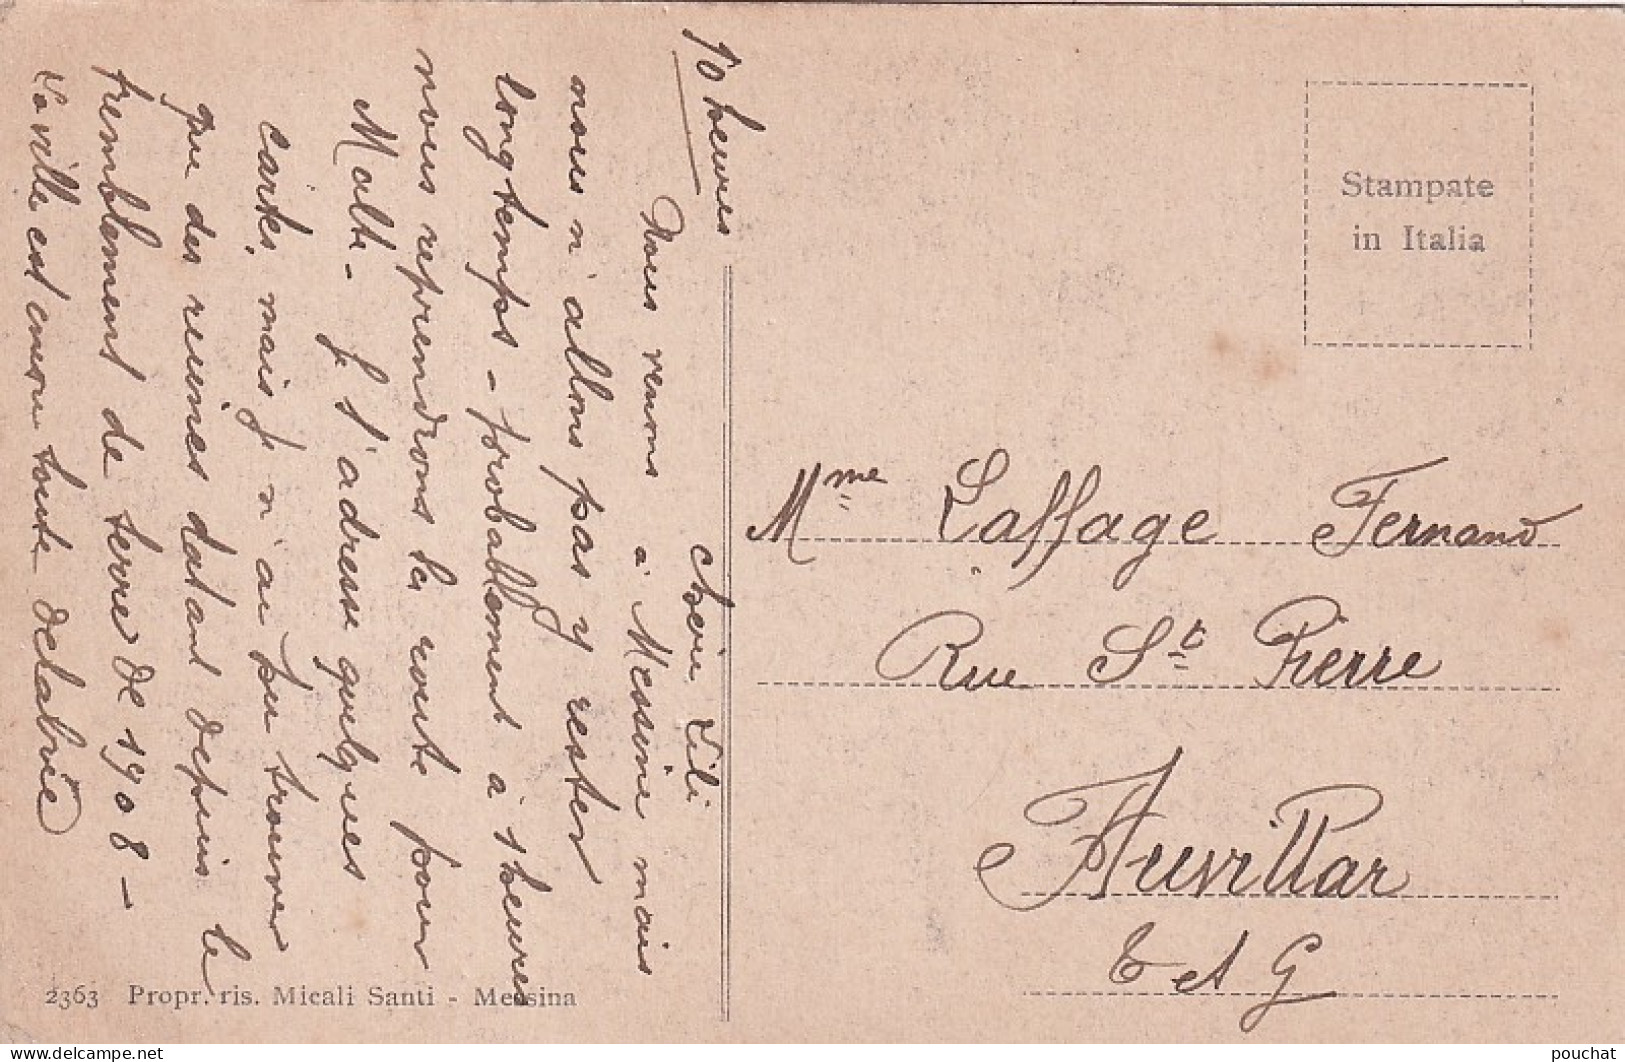 10 heures
Chérie Lili
Nous venons à Messine mais
nous n'allons pas y rester
longtemps - probablement à 1 heures
nous reprendrons la route pour
Malte - Je t'adresse quelques
cartes, mais je n'ai pu trouver
que des ruines datant depuis le
tremblement de terre de 1908 -
La ville est encore toute délabrée
Stampate
in Italia
Mme Laffage Fernand
Rue St Pierre
Auvillar
T et G
2363 Propr. ris. Micali Santi - Messina
pouchat